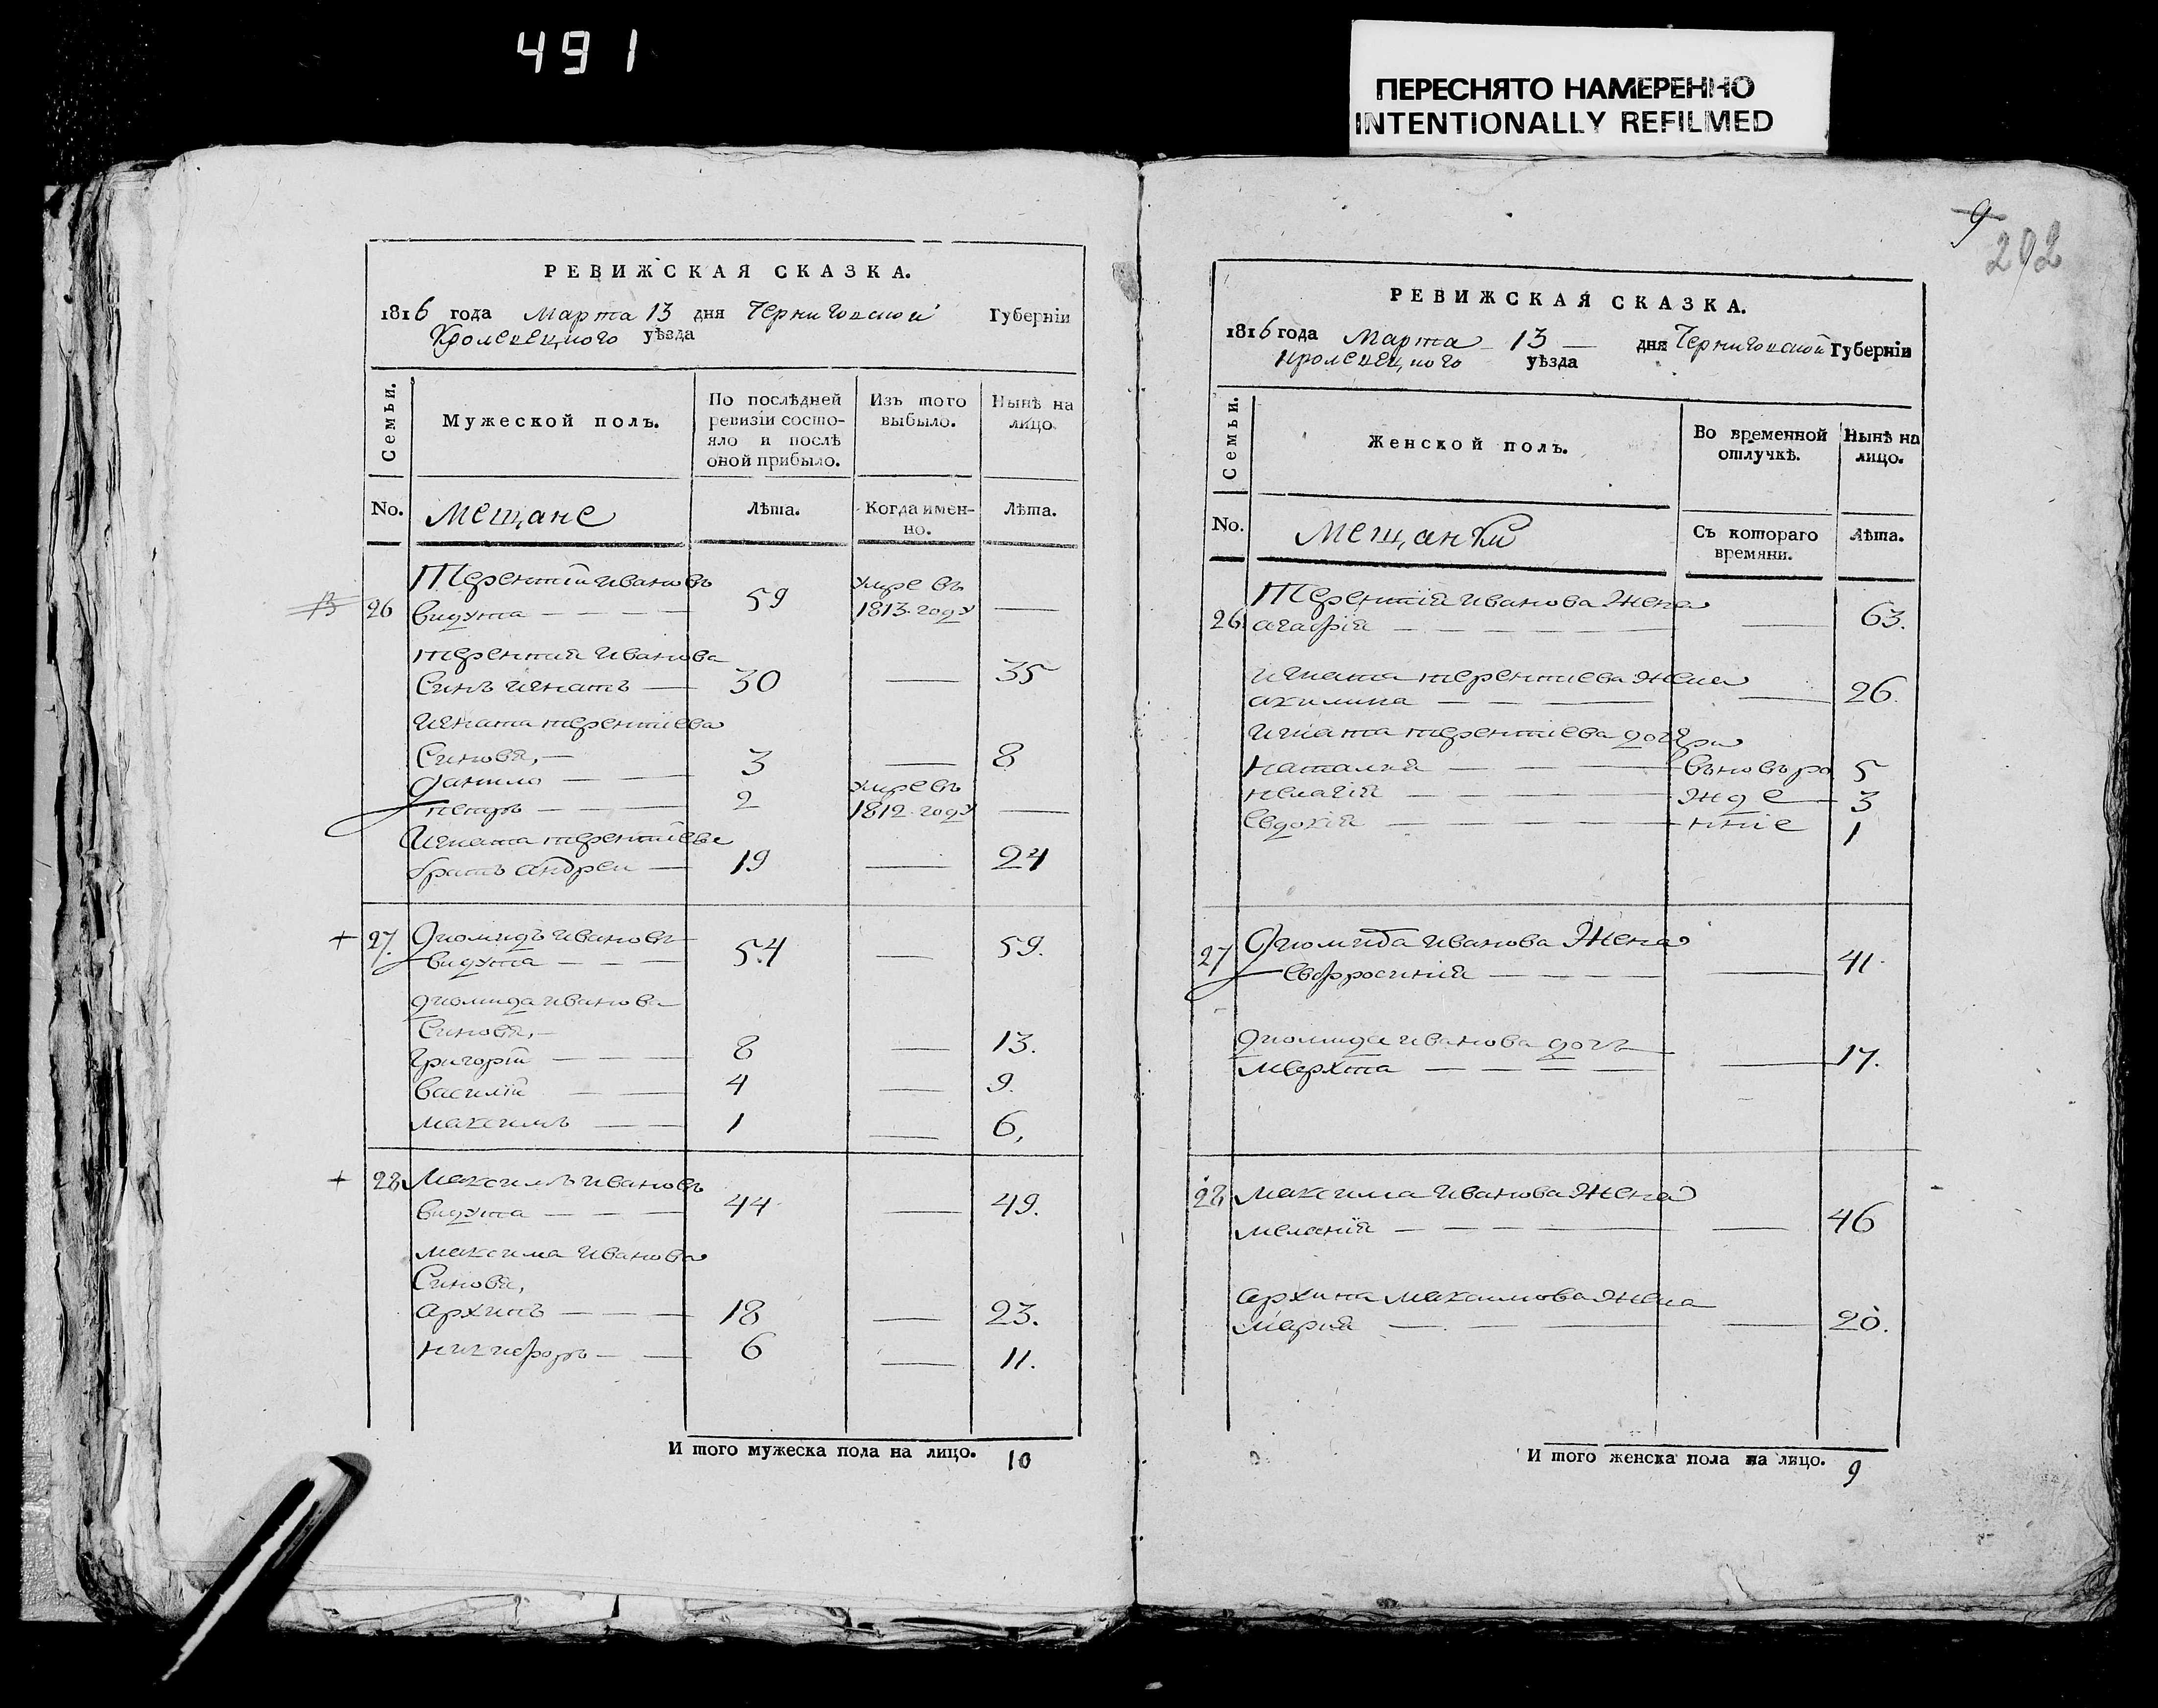 491
ПЕРЕСНЯТО НАМЕРЕННО
INTENTIONALLY REFILMED
РЕВИЖСКАЯ СКАЗКА.
1816 года Марта 13 дня Черниговской Губерніи
Кролевецкого уѣзда
Семьи.
Мужеской полъ.
По послѣдней
ревизіи состо-
яло и послѣ
оной прибыло.
Изъ того
выбыло.
Нынѣ на
лицо
No.
Мещане
Лѣта.
Когда имен-
но.
Лѣта.
Терентій Ивановъ
26 видута 59 умре въ 1813 году
терентия Иванова
Синъ игнатъ 30 35
игната терентіева
Синова,
данило 3 8
петръ 2 умре въ 1812 году
Игната терентіева
братъ андреи 19 24
+ 27. Диомидъ Ивановъ
видута 54 59.
диомида иванова
Синова,
григорій 8 13.
василій 4 9.
максимъ 1 6,
+ 28 Максимъ Ивановъ
видута 44 49.
максима Иванова
Синова,
архипъ 18 23.
никифоръ 6 11.
И того мужеска пола на лицо. 10
9
202
РЕВИЖСКАЯ СКАЗКА.
1816 года Марта 13 дня Черниговской Губерніи
кролевецкого уѣзда
Семьи.
Женской полъ.
Во временной
отлучкѣ.
Нынѣ на
лицо.
No.
Мещанки
Съ котораго
времяни.
Лѣта.
Терентія Иванова Жена
26 агафія 63.
игната терентиева жена
акилина 26.
Игната терентіева дочери
наталия вновъро 5
пелагія жде 3
Евдокія нние 1
27 Диомида Иванова Жена
Евфросиния 41.
диомида иванова дочъ
мархта 17.
28 максима Иванова Жена
меланія 46
архипа максимова жена
мария 20.
И того женска пола на лицо. 9